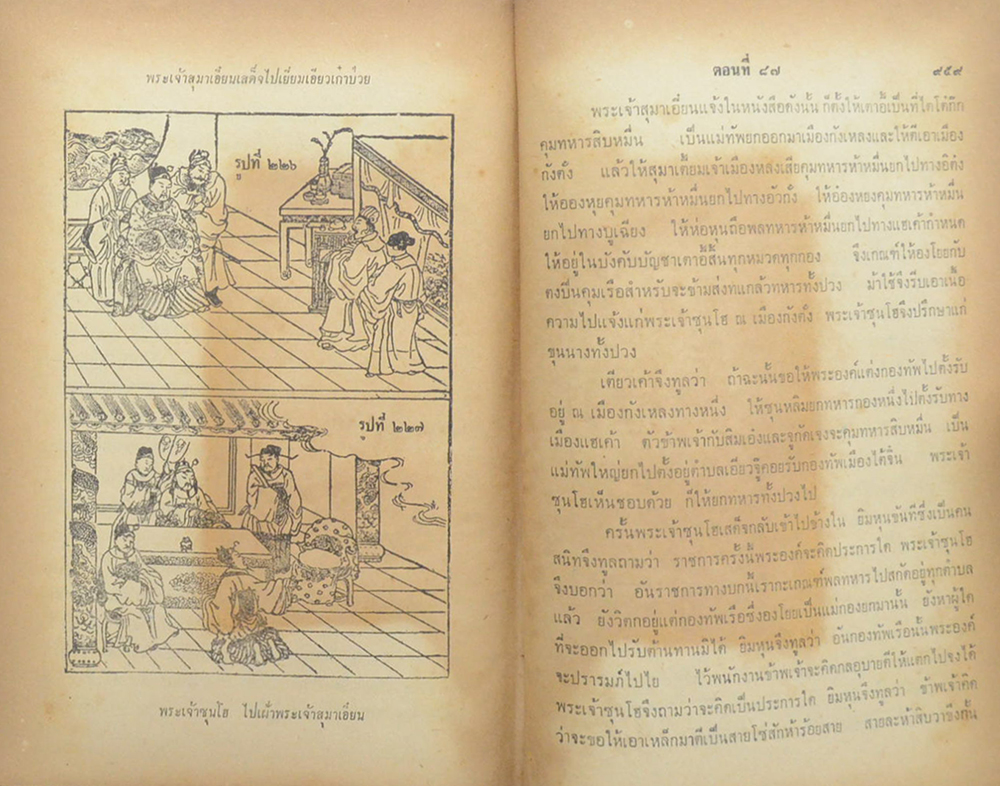 พระเจ้าสุมาเอี๋ยนเสด็จไปเยี่ยมเอียวเก๋าป่วย
รูปที่ ๒๒๖
รูปที่ ๒๒๗
พระเจ้าซุนโฮ ไปเฝ้าพระเจ้าสุมาเอี๋ยน
ตอนที่ ๘๗ ๙๕๙
พระเจ้าสุมาเอี๋ยนแจ้งในหนังสือดังนั้น ก็ตั้งให้เตาอี้เป็นที่ไตโต๋กิ๊ก
คุมทหารสิบหมื่น เป็นแม่ทัพยกออกมาเมืองกังเหลงและให้ตีเอาเมือง
กังตั๋ง แล้วให้สุมาเตี้ยมเจ้าเมืองหลงเสียคุมทหารห้าหมื่นยกไปทางอิต๋ง
ให้อองหุยคุมทหารห้าหมื่นยกไปทางอ้วกั๋ง ให้อ๋องหยงคุมทหารห้าหมื่น
ยกไปทางบูเฉียง ให้ห่อหุนถือพลทหารห้าหมื่นยกไปทางแฮเค้ากำหนด
ให้อยู่ในบังคับบัญชาเตาอี้สิ้นทุกหมวดทุกกอง จึงเกณฑ์ให้องโยยกับ
ตงปินคุมเรือสำหรับจะข้ามส่งทแกล้วทหารทั้งปวง ม้าใช้จึงรีบเอาเนื้อ
ความไปแจ้งแก่พระเจ้าซุนโฮ ณ เมืองกังตั๋ง พระเจ้าซุนโฮจึงปรึกษาแก่
ขุนนางทั้งปวง
เตียวเค้าจึงทูลว่า ถ้าฉะนั้นขอให้พระองค์แต่งกองทัพไปตั้งรับ
อยู่ ณ เมืองกังเหลงทางหนึ่ง ให้ซุนหลิมยกทหารกองหนึ่งไปตั้งรับทาง
เมืองแฮเค้า ตัวข้าพเจ้ากับสิมเอ๋งและจูกัดเจงจะคุมทหารสิบหมื่น เป็น
แม่ทัพใหญ่ยกไปตั้งอยู่ตำบลเอียวจู๊คอยรับกองทัพเมืองไต้จิ๋น พระเจ้า
ซุนโฮเห็นชอบด้วย ก็ให้ยกทหารทั้งปวงไป
ครั้นพระเจ้าซุนโฮเสด็จกลับเข้าไปข้างใน ยิมหุนขันทีซึ่งเป็นคน
สนิทจึงทูลถามว่า ราชการครั้งนี้พระองค์จะคิดประการใด พระเจ้าซุนโฮ
จึงบอกว่า อันราชการทางบกนี้เรากะเกณฑ์พลทหารไปสกัดอยู่ทุกตำบล
แล้ว ยังวิตกอยู่แต่กองทัพเรือซึ่งองโยยเป็นแม่กองยกมานั้น ยังหาผู้ใด
ที่จะออกไปรับต้านทานมิได้ ยิมหุนจึงทูลว่า อันกองทัพเรือนั้นพระองค์
จะปรารมภ์ไปไย ไว้พนักงานข้าพเจ้าจะคิดกลอุบายตีให้แตกไปจงได้
พระเจ้าซุนโฮจึงถามว่าจะคิดเป็นประการใด ยิมหุนจึงทูลว่า ข้าพเจ้าคิด
ว่าจะขอให้เอาเหล็กมาตีเป็นสายโซ่สักห้าร้อยสาย สายละห้าสิบวาขึงกั้น